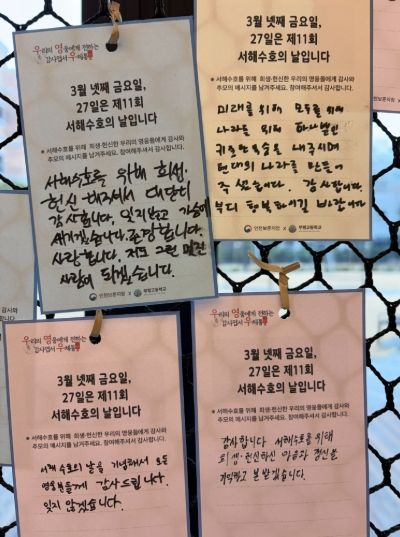 우리의 영웅에게 전하는
감사엽서 우체통
3월 넷째 금요일,
27일은 제11회
서해수호의 날입니다
● 서해수호를 위해 희생·헌신한 우리의 영웅들에게 감사와
추모의 메시지를 남겨주세요. 참여해주셔서 감사합니다.
서해수호를 위해 희생.
헌신 해주셔서 대단히
감사합니다. 잊지않고 가슴에
새기겠습니다. 존경합니다.
사랑합니다. 저도 그런 멋진
사람이 되겠습니다.
인천보훈지청 X 부평고등학교
3월 넷째 금요일,
27일은 제11회
서해수호의 날입니다
● 서해수호를 위해 희생·헌신한 우리의 영웅들에게 감사와
추모의 메시지를 남겨주세요. 참여해주셔서 감사합니다.
미래를 위해 모두를 위해
나라를 위해 하나뿐인
귀중한 목숨을 내주시며
현대의 나라를 만들어
주셨습니다. 감사합니다.
부디 행복하시길 바랍니다
인천보훈지청 X 부평고등학교
우리의 영웅에게 전하는
감사엽서 우체통
3월 넷째 금요일,
27일은 제11회
서해수호의 날입니다
● 서해수호를 위해 희생·헌신한 우리의 영웅들에게 감사와
추모의 메시지를 남겨주세요. 참여해주셔서 감사합니다.
서해 수호의 날을 기념해서 모든
영웅분들께 감사드립니다.
잊지 않겠습니다.
우리의 영웅에게 전하는
감사엽서 우체통
3월 넷째 금요일,
27일은 제11회
서해수호의 날입니다
● 서해수호를 위해 희생·헌신한 우리의 영웅들에게 감사와
추모의 메시지를 남겨주세요. 참여해주셔서 감사합니다.
감사합니다 서해수호를 위해
희생·헌신하신 마음과 정신을
기억하고 본받겠습니다.